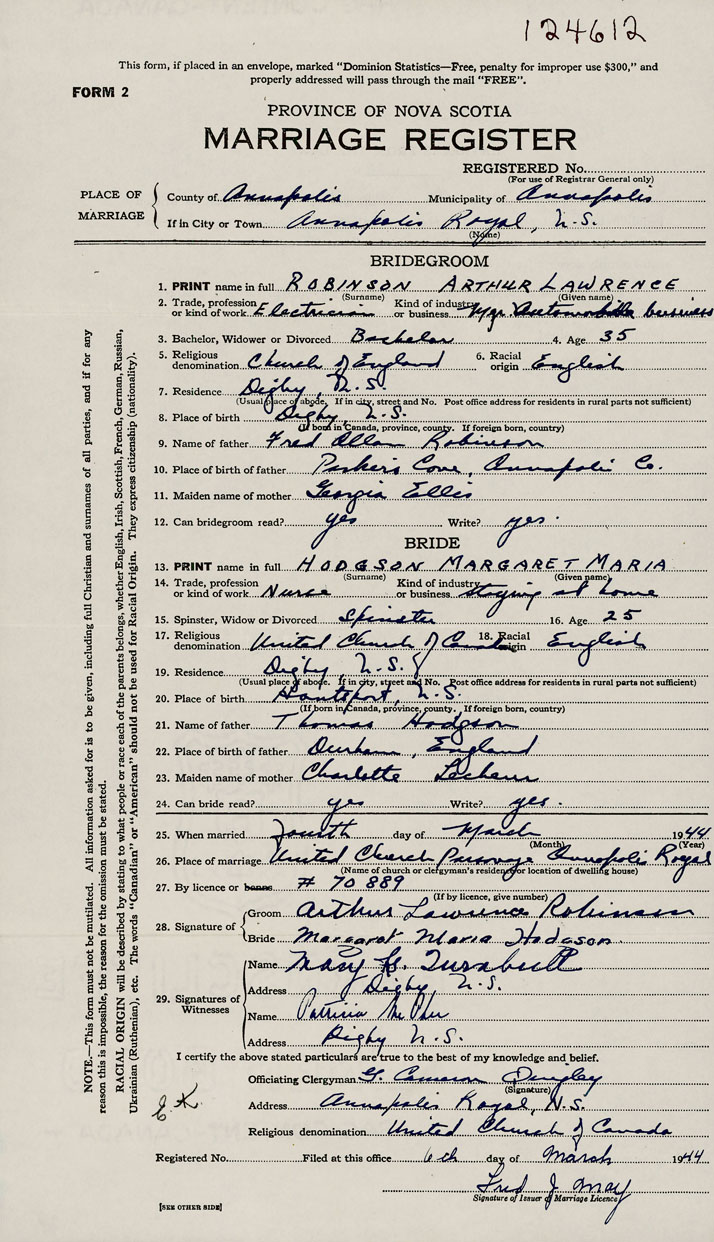 124612
This form, if placed in an envelope, marked "Dominion Statistics—Free, penalty for improper use $300," and
properly addressed will pass through the mail "FREE".
FORM 2
PROVINCE OF NOVA SCOTIA
MARRIAGE REGISTER
REGISTERED No.
(For use of Registrar General only)
PLACE OF MARRIAGE
County of Annapolis Municipality of Annapolis
If in City or Town Annapolis Royal, N.S.
(Name)
BRIDEGROOM
1. PRINT name in full ROBINSON ARTHUR LAWRENCE
(Surname) (Given name)
2. Trade, profession or kind of work Electrician Kind of industry or business Mgr. Automobile business
3. Bachelor, Widower or Divorced Bachelor 4. Age 35
5. Religious denomination Church of England 6. Racial origin English
7. Residence Digby, N.S.
(Usual place of abode. If in city, street and No. Post office address for residents in rural parts not sufficient)
8. Place of birth Digby N.S.
(If born in Canada, province, county. If foreign born, country)
9. Name of father Fred Allan Robinson
10. Place of birth of father Parkers Cove, Annapolis Co.
11. Maiden name of mother Georgia Ellis
12. Can bridegroom read? yes Write? yes.
BRIDE
13. PRINT name in full HODGSON MARGARET MARIA
(Surname) (Given name)
14. Trade, profession or kind of work Nurse Kind of industry or business staying at home
15. Spinster, Widow or Divorced Spinster 16. Age 25
17. Religious denomination United Church of Canada 18. Racial origin English
19. Residence Digby, N.S.
(Usual place of abode. If in city, street and No. Post office address for residents in rural parts not sufficient)
20. Place of birth Hantsport, N.S.
(If born in Canada, province, county. If foreign born, country)
21. Name of father Thomas Hodgson
22. Place of birth of father Durham, England
23. Maiden name of mother Charlotte
24. Can bride read? yes Write? yes.
25. When married fourth day of March 1944
(Month) (Year)
26. Place of marriage United Church Parsonage Annapolis Royal
(Name of church or clergyman's residence or location of dwelling house)
27. By licence or banns # 70889
(If by licence, give number)
28. Signature of
Groom Arthur Lawrence Robinson
Bride Margaret Maria Hodgson.
29. Signatures of Witnesses
Name Mary Turnbull
Address Digby N.S.
Name Patricia
Address Digby N.S.
I certify the above stated particulars are true to the best of my knowledge and belief.
Officiating Clergyman G. Cameron Dingley
(Signature)
Address Annapolis Royal, N.S.
Religious denomination United Church of Canada
E.K.
Registered No. Filed at this office 6th day of March 1944
Fred J May
Signature of Issuer of Marriage Licence
[SEE OTHER SIDE]
NOTE.—This form must not be mutilated. All information asked for is to be given, including full Christian and surnames of all parties, and if for any
reason this is impossible, the reason for the omission must be stated.
RACIAL ORIGIN will be described by stating to what people or race each of the parents belongs, whether English, Irish, Scottish, French, German, Russian,
Ukrainian (Ruthenian), etc. The words "Canadian" or "American" should not be used for Racial Origin. They express citizenship (nationality).